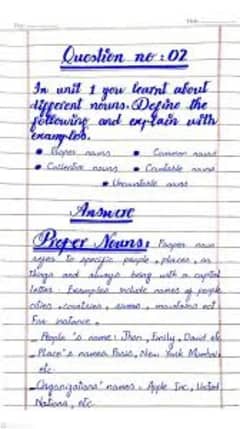 Question no : 02
In unit 1 you learnt about
different nouns. Define the
following and explain with
examples.
• Proper nouns • Common nouns
• Collective nouns • Countable nouns
• Uncountable nouns
Answere
Proper Nouns: Proper noun
refers to specific people, places, or
things and always being with a capital
letter. Examples include names of people
cities, countries, rivers, mountains ect
For instance,
_ People's name: Jhon, Emily, David etc
_ Place's names Paris, New York Mumbai
etc.
_ Organizations' names: Apple Inc, United
Nations, etc.